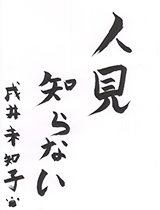 人見
知らない
井未知子